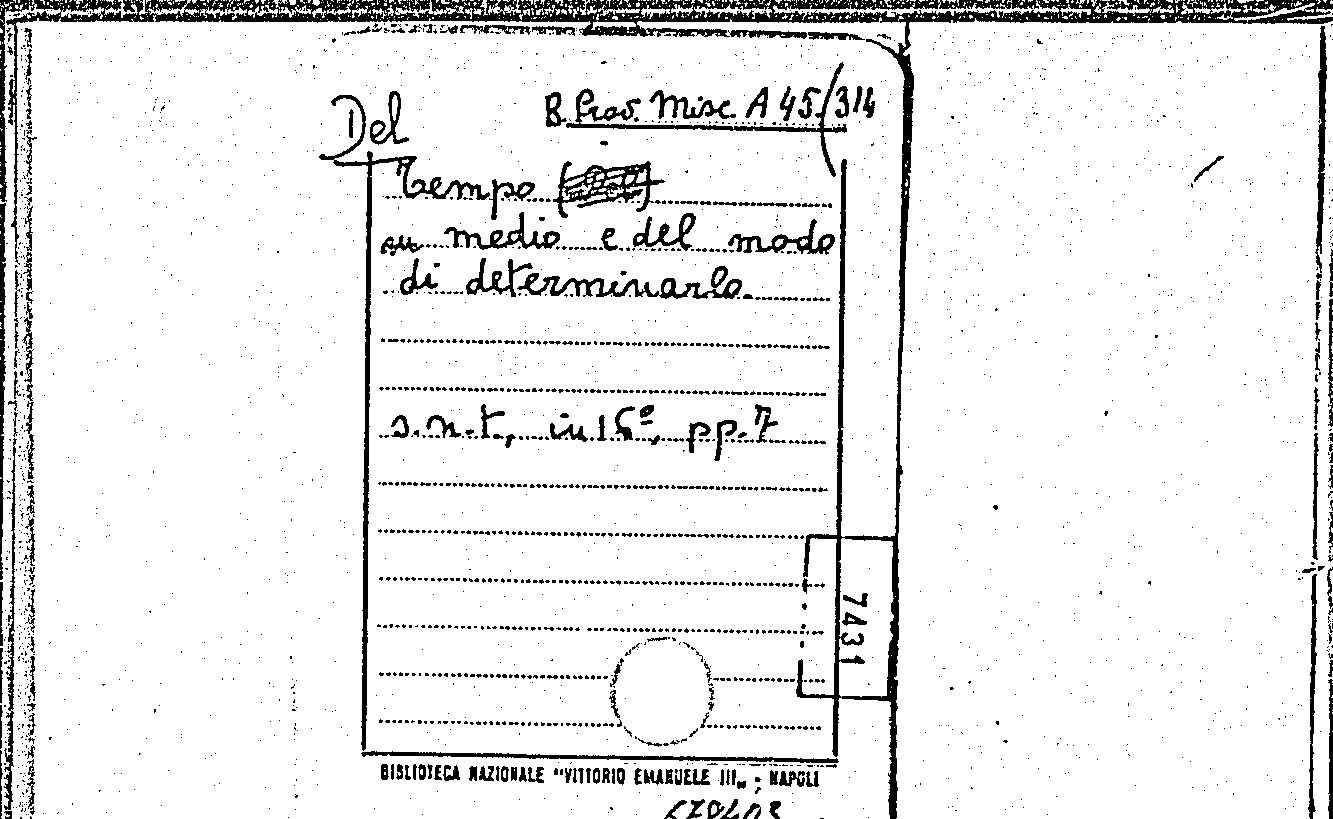 Del
B. Prov. Misc. A 45/314
Tempo
medio e del modo
di determinarlo.
s.n.t., in 16º, pp. 7
7431
BIBLIOTECA NAZIONALE "VITTORIO EMANUELE III„ ; NAPOLI